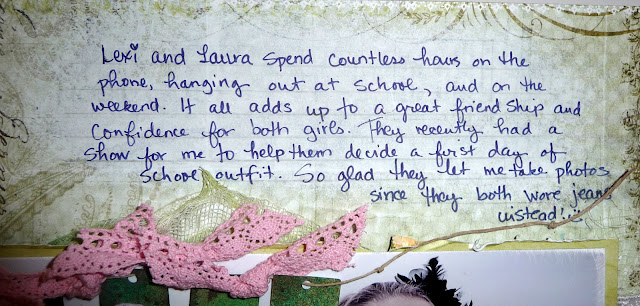 Lexi and Laura spend countless hours on the
phone, hanging out at school, and on the
weekend. It all adds up to a great friendship and
confidence for both girls. They recently had a
show for me to help them decide a first day of
school outfit. So glad they let me take photos
since they both wore jeans
instead! :)